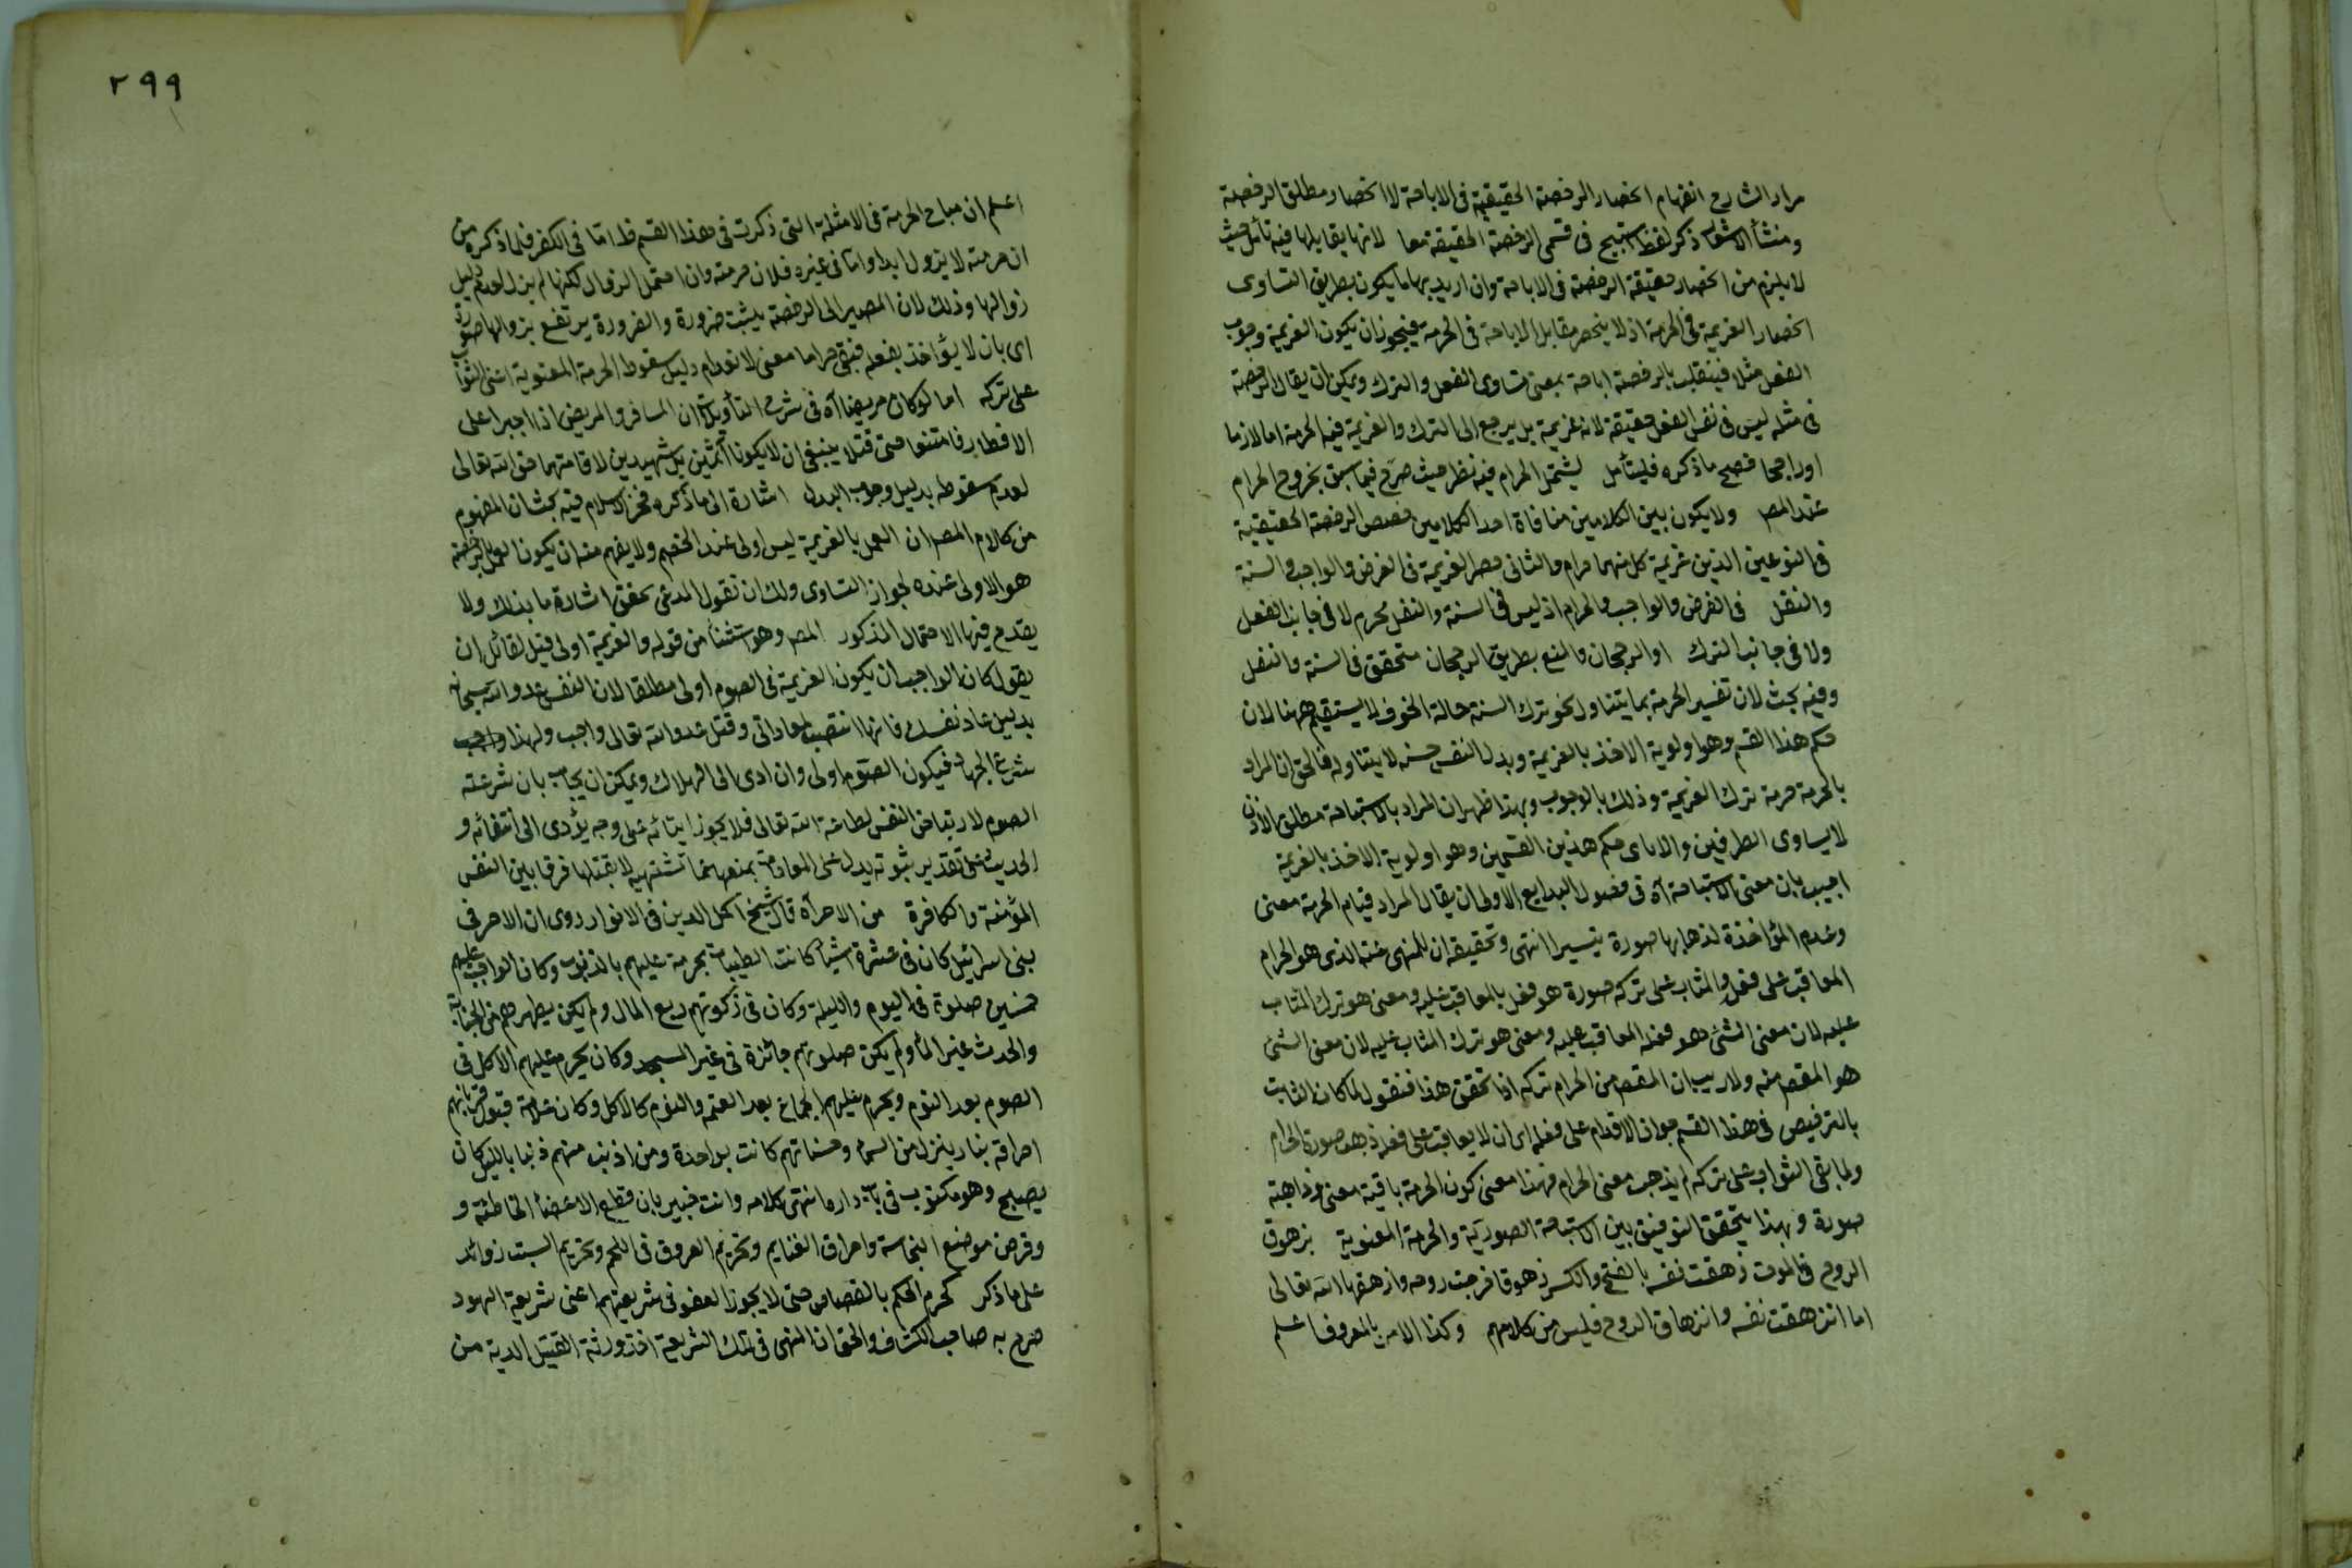 مراد الشارح انفهام انحصار الرخصة الحقيقية فى الاباحة لا انحصار مطلق الرخصة
ومنشأ الاشعار ذكر لفظ استبيح فى قسمى الرخصة الحقيقة معا لانها يقابلها فيه تأمل حيث
لا يلزم من انحصار حقيقة الرخصة فى الاباحة وان اريد بها ما يكون بطريق التساوى
انحصار العزيمة فى الحرمة اذ لا ينحصر مقابل الاباحة فى الحرمة فيجوز ان يكون العزيمة وجوب
الفعل مثلا فينقلب بالرخصة اباحة بمعنى تساوى الفعل والترك ويمكن ان يقال الرخصة
فى مثله ليس فى نفس الفعل حقيقة لانه عزيمة بل يرجع الى الترك والعزيمة فيه الحرمة اما لازما
او راجحا فصح ما ذكره فليتأمل ليشتمل الحرام فيه نظر حيث صرح فيما سبق بخروج الحرام
عند المص ولا يكون بين الكلامين منافاة احد الكلامين حصر الرخصة الحقيقية
فى النوعين الذين عزيمة كل منهما حرام والثانى حصر العزيمة فى الفرض والواجب والسنة
والنفل فى الفرض والواجب والحرام اذ ليس فى السنة والنفل محرم لا فى جانب الفعل
ولا فى جانب الترك او الرجحان والمنع بطريق الرجحان متحقق فى السنة والنفل
وفيه بحث لان تفسير الحرمة بما يتناول نحو ترك السنة حالة الخوف لا يستقيم ههنا لان
حكم هذا القسم وهو اولوية الاخذ بالعزيمة وبذل النفس حسنة لا يتناوله فالحق ان المراد
بالحرمة حرمة ترك العزيمة وذلك بالوجوب وبهذا ظهر ان المراد بالاستباحة مطلق الاذن
لا يساوى الطرفين والا باى حكم هذين القسمين وهو اولوية الاخذ بالعزيمة
اجيب بان معنى الاستباحة آه فى فصول البدايع الاولى ان يقال المراد قيام الحرمة معنى
وعدم المؤاخذة لذهابها صورة تيسيرا انتهى وتحقيقه ان للمنهى عنه الذى هو الحرام
المعاقب على فعله والمثاب على تركه صورة هو فعل بالمعاقب عليه ومعنى هو ترك المثاب
عليه لان معنى الشئ هو فعله المعاقب عليه ومعنى هو ترك المثاب عليه لان معنى الشئ
هو المقصـ منه ولا ريب ان المقصـ من الحرام تركه اذا تحقق هذا فنقول لما كان الثابت
بالترخيص فى هذا القسم جواز الاقدام على فعله اى ان لا يعاقب على فعله ذهب صورة الحرام
ولما بقى الثواب على تركه لم يذهب معنى الحرام فهذا معنى كون الحرمة باقية معنى وذاهبة
صورة وبهذا يتحقق التوفيق بين الاستباحة الصورية والحرمة المعنوية بزهوق
الروح فى الموت زهقت نفسه بالفتح والكسر زهوقا خرجت روحه وازهقها الله تعالى
اما انزهقت نفسه وانزهاق الروح فليس من كلامهم وكذا الامر بالمعروف اعلم
٢٩٩
اعلم ان مباح الحرمة فى الامثلة التى ذكرت فى هذا القسم ظ اما فى الكفر فلما ذكره من
ان حرمته لا يزول ابدا واما فى غيره فلان حرمته وان احتمل الزوال لكنها لم يزل لعدم دليل
زوالها وذلك لان المصير الى الرخصة يثبت ضرورة والضرورة يرتفع بزوالها صورة
اى بان لا يؤاخذ بفعله فبقى حراما معنى لانعدام دليل سقوط الحرمة المعنوية اعنى الثواب
على تركه اما لو كان مريضا آه فى شرح التأويلات ان المسافر والمريض اذا اجبرا على
الافطار فامتنعا حتى قتلا ينبغى ان لا يكونا آثمين بل شهيدين لاقامتهما حق الله تعالى
لعدم سقوطه بدليل وجوب البدل اشارة الى ما ذكره فخر الاسلام فيه بحث ان المفهوم
من كلام المص ان العمل بالعزيمة ليس اولى عند الخصم ولا يفهم منه ان يكون العمل بالرخصة
هو الاولى عنده لجواز التساوى ولك ان تقول المدعى تحقق اشارة ما بذلك ولا
يقدح فيها الاحتمال المذكور المص وهو استثناء من قوله والعزيمة اولى قيل لقائل ان
يقول كان الواجب ان يكون العزيمة فى الصوم اولى مطلقا لان النفس عدو الله سبحانه
بدليل عاد نفسك فانها انتصبت لمعاداتى وقتل عدو الله تعالى واجب ولهذا وجب
شرع الجهاد فيكون الصوم اولى وان ادى الى الهلاك ويمكن ان يجاب بان شرعته
الصوم لارتياض النفس لطاعة الله تعالى فلا يجوز ايتائه على وجه يؤدى الى انتفائه و
الحديث على تقدير ثبوته يدل على المعاداة بمنعها عما تشتهيه لا بقتلها فرقا بين النفس
المؤمنة والكافرة من الاصر آه قال الشيخ اكمل الدين فى الانوار روى ان الاصر فى
بنى اسرائيل كان فى عشرة اشياء كانت الطيبات يحرمة عليهم بالذنوب وكان الواجب عليهم
خمسين صلوة فى اليوم والليلة وكان فى زكوتهم ربع المال ولم يكن يطهرهم من الجنابة
والحدث غير الماء ولم يكن صلوتهم جائزة فى غير المسجد وكان يحرم عليهم الاكل فى
الصوم بعد النوم ويحرم عليهم الجماع بعد العتمة والنوم كالاكل وكان علامة قبول قربانهم
احراقه بنار ينزل من السماء وحسناتهم كانت بواحدة ومن اذنب منهم ذنبا بالليل كان
يصبح وهو مكتوب فى باب داره انتهى كلامه وانت خبير بان قطع الاعضاء الخاطئة و
وقرض موضع النجاسة واحراق الغنايم وتحريم العروق فى اللحم وتحريم السبت زوائد
على ما ذكر كحرم الحكم بالقصاص حتى لا يجوز العفو فى شريعتهم اعنى شريعة اليهود
صرح به صاحب الكشاف والحق ان المنهى فى تلك الشريعة اخذ ورثة القتيل الدية من